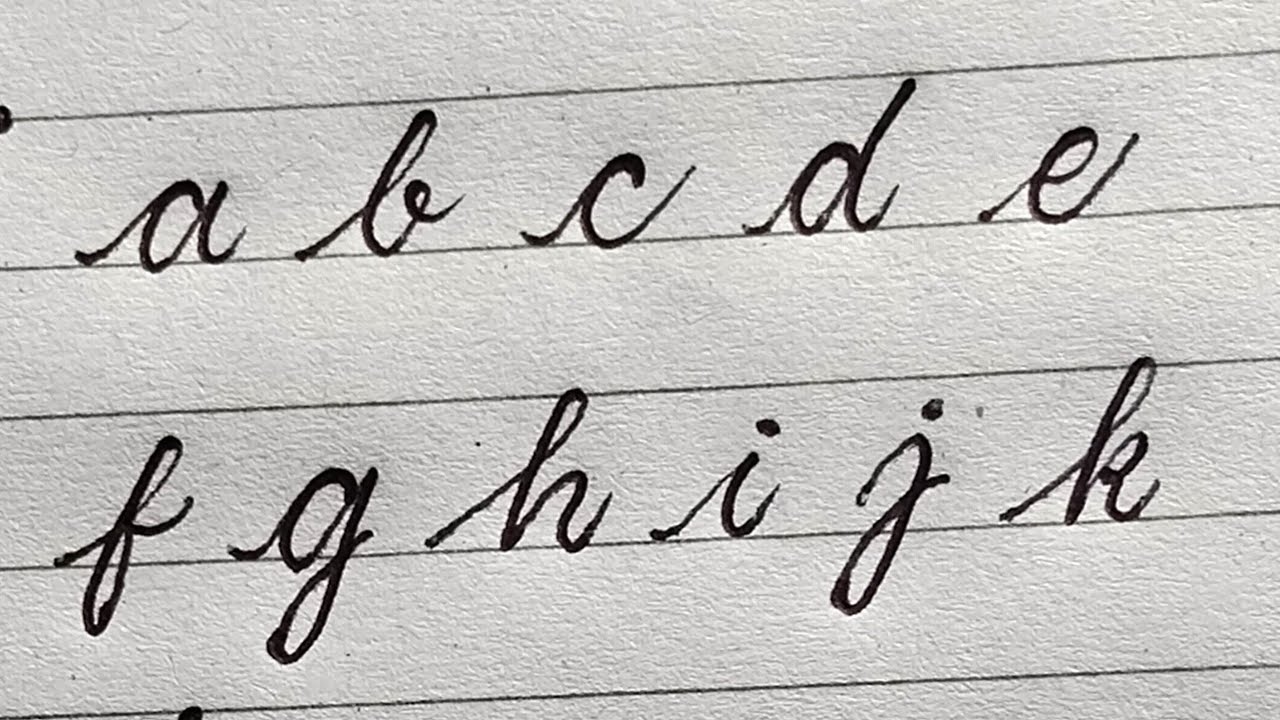 a b c d e
f g h i j k